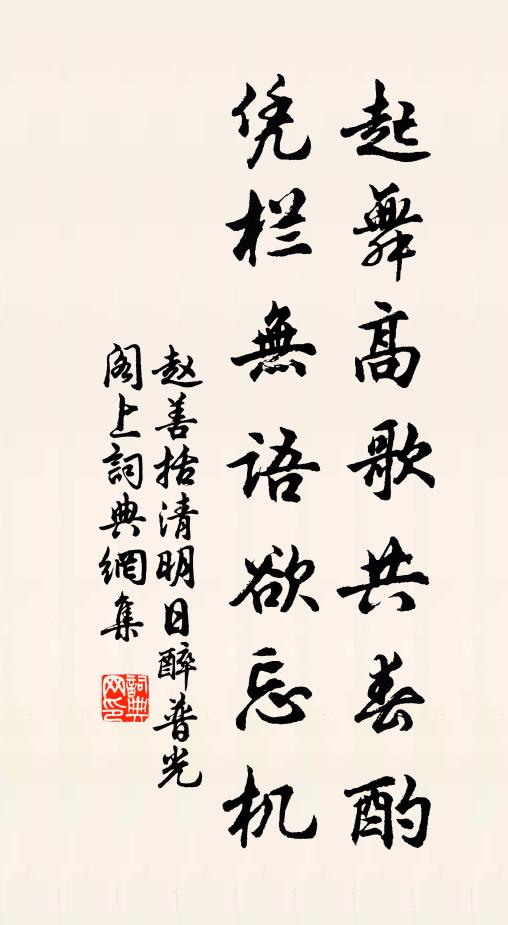 起舞高歌共春酌
凭栏無语欲忘机
赵善括清明日醉普光
阁上詞典網集
詞典网印